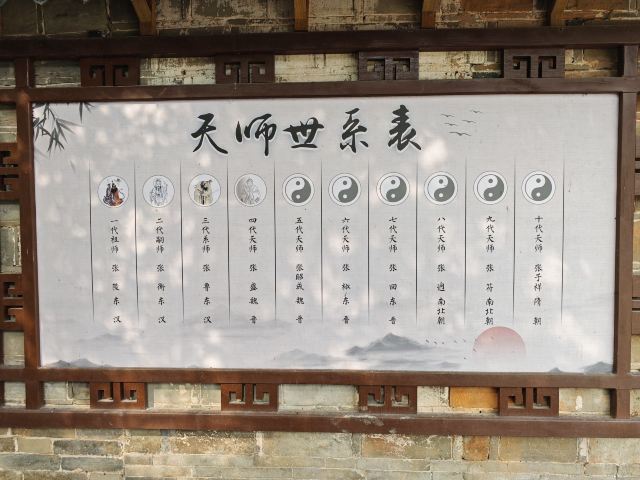 天师世系表
一代祖师 张 陵 东 汉
二代嗣师 张 衡 东 汉
三代系师 张 鲁 东 汉
四代天师 张 盛 魏 晋
五代天师 张昭成 魏 晋
六代天师 张 椒 东 晋
七代天师 张 回 东 晋
八代天师 张 迥 南北朝
九代天师 张 符 南北朝
十代天师 张子祥 隋 朝